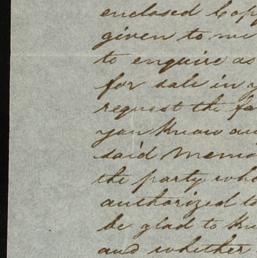 enclosed Copy
given to me
to enquire as
for sale in y
request the fa
you know an
said Memo
the party wh
authorized to
be glad to kn
and whether